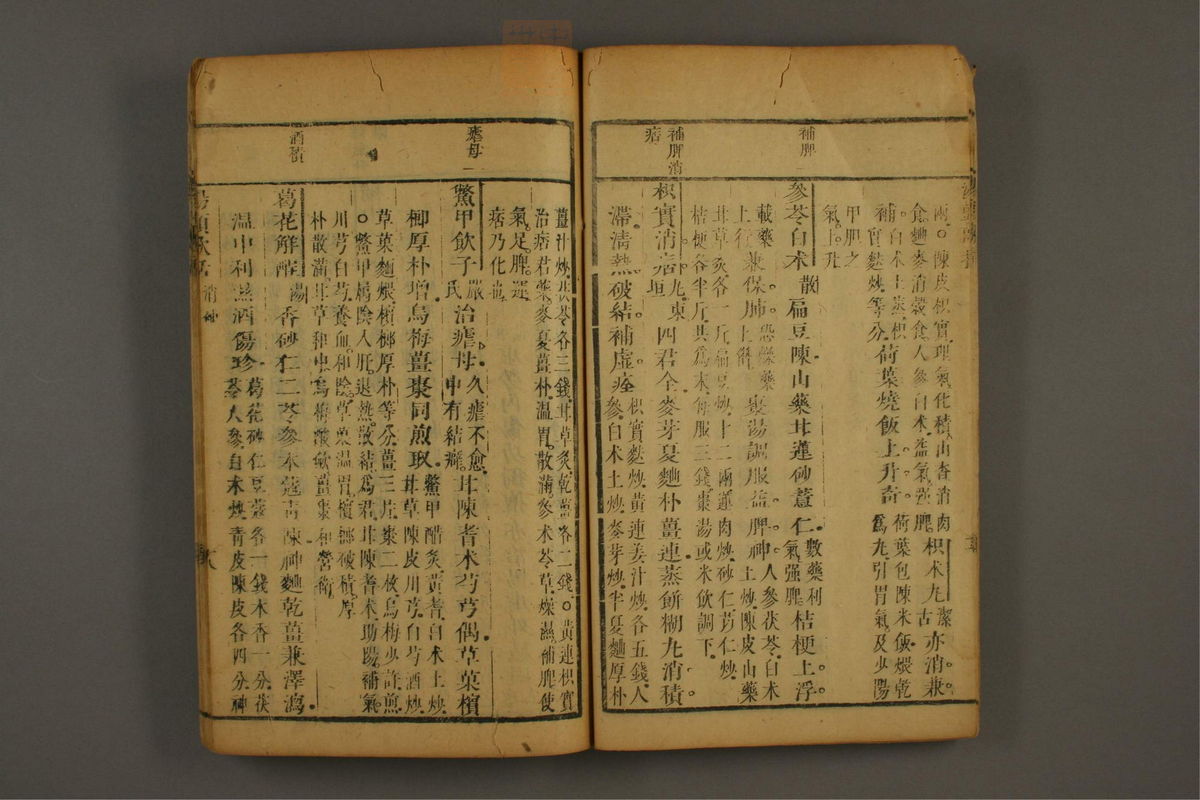 補脾
兩。陳皮枳實理氣化積山查消肉
食麯麥消穀食人參白朮益氣強脾。
枳朮丸潔古亦消兼。
補。白朮土蒸枳
實麩炒等分
荷葉燒飯上升奇。
荷葉包陳米飯煨乾
爲丸引胃氣及少陽
甲胆之
氣上升
參苓白朮散扁豆陳山藥甘蓮砂薏仁。
數藥利
氣强脾
桔梗上浮。
載藥。
上行
兼保肺。
恐燥藥
上僭
棗湯調服益脾神。
人參茯苓白朮
土炒陳皮山藥
甘草炙各一斤扁豆炒十二兩蓮肉炒砂仁苡仁炒
桔梗各半斤共爲末每服三錢棗湯或米飲調下
補脾消
痞
枳實消痞丸東垣四君全。麥芽夏麯朴薑連。蒸餅糊丸消積
滯清熱。破結補虛痊
枳實麩炒黃連姜汁炒各五錢人
參白朮土炒麥芽炒半夏麯厚朴
薑汁炒茯苓各三錢甘草炙乾薑各二錢。黃連枳實
治痞君藥麥夏薑朴溫胃。散滿。參朮苓草燥濕補脾使
氣足。脾運
痞乃化也
瘧母
鱉甲飲子嚴氏治瘧母。
久瘧不愈。
中有結癖。
甘陳耆朮芍芎偶。草菓檳
榔厚朴增。烏梅薑棗同煎取
鱉甲醋炙黃耆白朮土炒
甘草陳皮川芎白芍酒炒
草菓麵煨檳榔厚朴等分薑三片棗二枚烏梅少許煎
。鱉甲屬陰入肝退熱散結爲君甘陳耆朮助陽補氣
川芎白芍養血和陰草菓溫胃檳榔破積厚
朴散滿甘草和中烏梅酸斂薑棗和營衛
酒積
葛花解酲湯香砂仁。二苓參朮蔻青陳。神麯乾薑兼澤瀉。
溫中利濕酒傷珍
葛花砂仁豆蔻各一錢木香一分茯
苓人參白朮炒青皮陳皮各四分神
湯頭歌訣